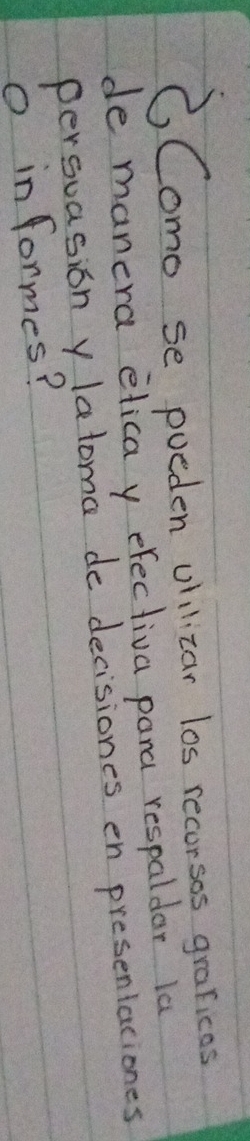 ¿Como se pueden utilizar los recursos graficos
de manera ética y efectiva para respaldar la
persuasión y la toma de decisiones en presentaciones
o informes?